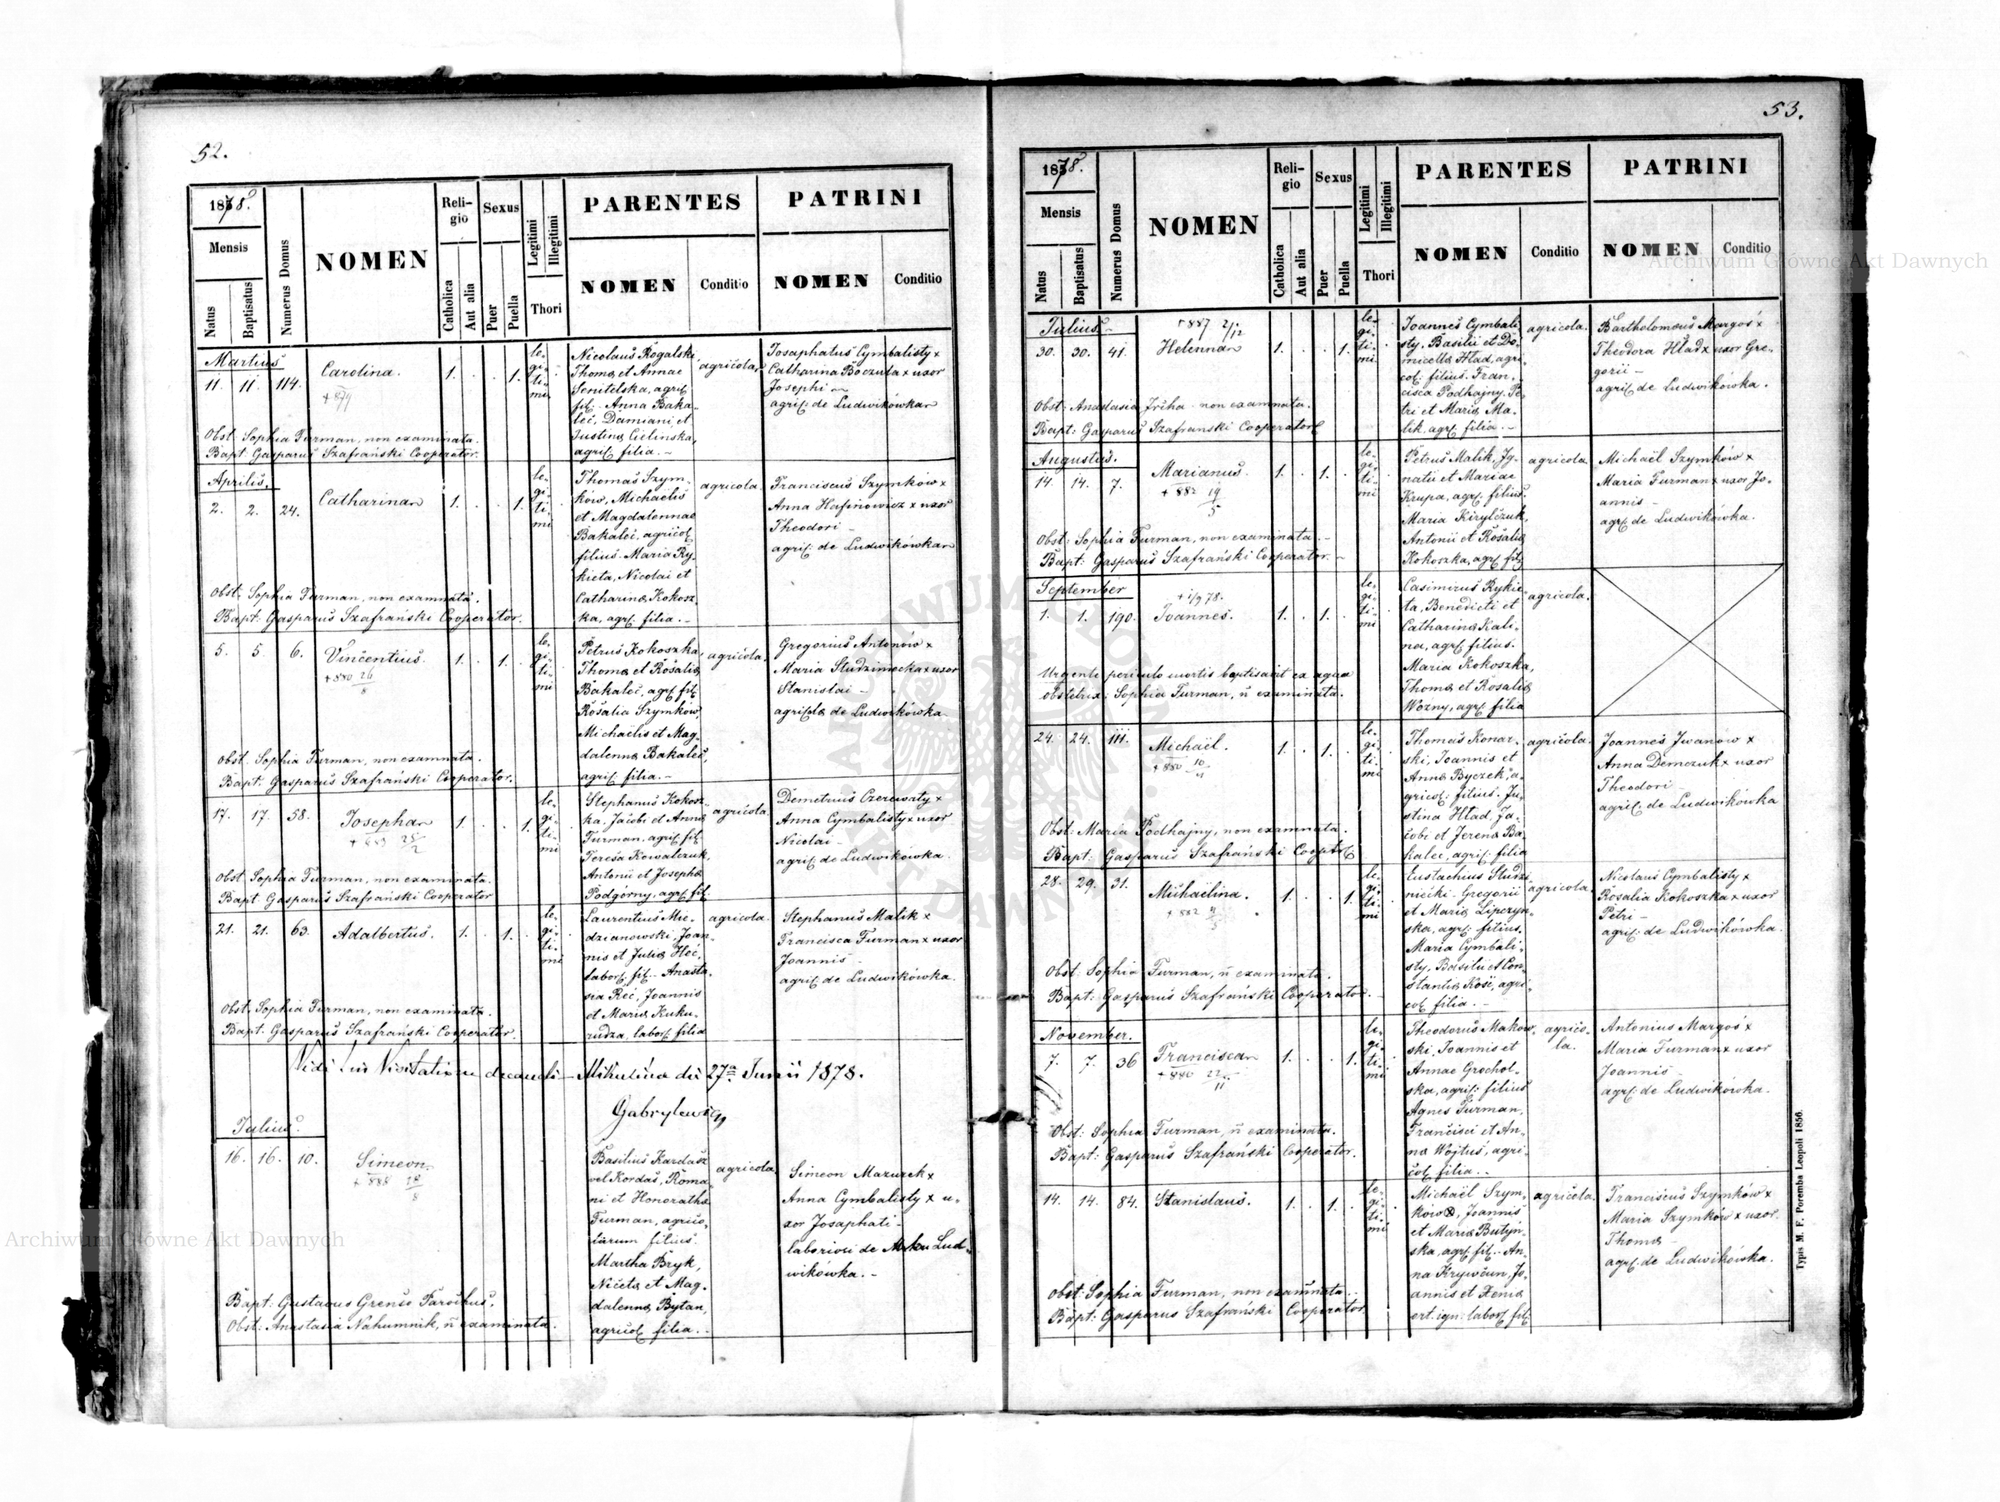 52.
1878.
Mensis
Natus
Baptisatus
Numerus Domus
NOMEN
Religio
Catholica
Aut alia
Sexus
Puer
Puella
Legitimi
Illegitimi
Thori
PARENTES
NOMEN
Conditio
PATRINI
NOMEN
Conditio
Martius
11. 11. 114.
Carolina.
+ 879
1. . . 1.
le-
gi-
ti-
mi
Nicolaus Rogalski,
Thoma et Annae
Senitelska, agric.
fil. Anna Baka-
leć, Damiani et
Justina Cielinska,
agric. filia. –
agricola,
Josaphatus Cymbalisty x
Catharina Boczula x uxor
Josephi –
agric. de Ludwikówka
Obst: Sophia Furman, non examinata.
Bapt: Gasparus Szafrański Cooperator.
Aprilis.
2. 2. 24.
Catharina
1. . . 1.
le-
gi-
ti-
mi
Thomas Szym-
ków, Michaelis
et Magdalennae
Bakaleć, agricol.
filius. Maria Ry-
kieta, Nicolai et
Catharina Kokosz-
ka, agric. filia. –
agricola.
Franciscus Szymków x
Anna Hafinowicz x uxor
Theodori –
agric. de Ludwikówka
Obst: Sophia Furman, non examinata.
Bapt: Gasparus Szafrański Cooperator.
5. 5. 6.
Vincentius.
+ 880 26/8
1. . 1. .
le-
gi-
ti-
mi
Petrus Kokoszka,
Thoma et Rosalia
Bakaleć, agric. fil.
Rosalia Szymków,
Michaelis et Mag-
dalenna Bakaleć,
agric. filia. –
agricola.
Gregorius Antonów x
Maria Studzinicka x uxor
Stanislai –
agricola de Ludwikówka
Obst. Sophia Furman, non examinata.
Bapt. Gasparus Szafrański Cooperator.
17. 17. 58.
Josepha
1. . . 1.
le-
gi-
ti-
mi
Stephanus Kokosz-
ka, Jacobi et Anna
Furman, agric. fil.
Teresa Kowalczuk,
Antonii et Josepha
Podgórny, agric. fil.
agricola
Demetrius Czerewaty x
Anna Cymbalisty x uxor
Nicolai –
agric. de Ludwikówka.
Obst. Sophia Furman, non examinata.
Bapt. Gasparus Szafrański Cooperator
21. 21. 63.
Adalbertus.
1. . 1. .
le-
gi-
ti-
mi
Laurentius Mie-
dzianowski, Joan-
nis et Julia Heć,
labor. fil. Anasta-
sia Reć, Joannis
et Maria Kuku-
rudza, labor. filia
agricola.
Stephanus Malik x
Francisca Furman x uxor
Joannis –
agric. de Ludwikówka.
Obst. Sophia Furman, non examinata.
Bapt. Gasparus Szafrański Cooperator.
Vidi in Visitatione decanali – Mikulińce die 27a Junii 1878.
Gabrylewicz
Julius.
16. 16. 10.
Simeon.
+ 888 28/8
Basilius Kardasz
vel Kordaś, Roma-
ni et Honoratha
Furman, agrico-
larum filius.
Martha Bryk,
Niceta et Mag-
dalenna Bytan,
agricol. filia. –
agricola
Simeon Mazurek x
Anna Cymbalisty x u-
xor Josaphati –
laboriosi de Lud-
wikówka. –
Bapt: Gustavus Grenso Parochus.
Obst: Anastasia Nahumnik, ñ examinata.
53.
1878.
Mensis
Natus
Baptisatus
Numerus Domus
NOMEN
Religio
Catholica
Aut alia
Sexus
Puer
Puella
Legitimi
Illegitimi
Thori
PARENTES
NOMEN
Conditio
PATRINI
NOMEN
Conditio
Julius.
30. 30. 41.
+ 887 2/12
Helenna
1. . . 1.
le-
gi-
ti-
mi
Joannes Cymbali-
sty, Basilii et Do-
micella Hład, agri-
col. filius. Fran-
cisca Podhajny, Pe-
tri et Maria Ma-
lik. agric. filia. –
agricola.
Bartholomaeus Margoś x
Theodora Hład x uxor Gre-
gorii –
agric. de Ludwikówka.
Obst: Anastasia non examinata.
Bapt: Gasparus Szafrański Cooperator
Augustus.
14. 14. 7.
Marianus.
+ 882 19/5
1. . 1. .
le-
gi-
ti-
mi
Petrus Malik, Ig-
natii et Mariae
Krupa, agric. filius.
Maria Kirylczuk,
Antonii et Rosalia
Kokoszka, agric. fil.
agricola
Michaël Szymków x
Maria Furman x uxor Jo-
annis –
agric. de Ludwikówka.
Obst: Sophia Furman, non examinata. –
Bapt: Gasparus Szafrański Cooperator. –
September
1. 1. 190.
+ 1/9 78.
Joannes.
1. . 1. .
le-
gi-
ti-
mi
Casimirus Rykie-
ta, Benedicti et
Catharina Kali-
na, agric. filius.
Maria Kokoszka,
Thoma et Rosalia
Wozny, agric. filia
agricola.
Urgente periculo mortis baptisavit ex aqua
obstetrix: Sophia Furman, ñ examinata.
24. 24. 111.
Michaël.
+ 880 10/11
1. . 1. .
le-
gi-
ti-
mi
Thomas Konar-
ski, Joannis et
Anna Byczek, a-
gricol. filius. Ju-
stina Hład, Ja-
cobi et Jerena Ba-
kalec, agric. filia
agricola.
Joannes Iwanów x
Anna Demczuk x uxor
Theodori
agric. de Ludwikówka
Obst: Maria Podhajny, non examinata.
Bapt: Gasparus Szafrański Cooptr
28. 29. 31.
Michaëlina.
1. . . 1.
le-
gi-
ti-
mi
Eustachius Studzi-
niecki. Gregorii
et Maria Lipczyń-
ska, agric. filius.
Maria Cymbali-
sty, Basilii et Con-
stantia Kość, agri-
col. filia. –
agricola.
Nicolaus Cymbalisty x
Rosalia Kokoszka x uxor
Petri –
agric. de Ludwikówka.
Obst: Sophia Furman, ñ examinata.
Bapt: Gasparus Szafrański Cooperator. –
November.
7. 7. 36
Francisca
+ 880 22/11
1. . . 1.
le-
gi-
ti-
mi
Theodorus Makow-
ski, Joannis et
Annae Grochol-
ska, agric. filius
Agnes Furman,
Francisci et An-
na Wojtuś, agri-
col. filia. –
agrico-
la.
Antonius Margoś x
Maria Furman x uxor
Joannis –
agric. de Ludwikówka.
Obst: Sophia Furman, ñ examinata.
Bapt: Gasparus Szafrański Cooperator.
14. 14. 84.
Stanislaus.
1. . 1. .
le-
gi-
ti-
mi
Michaël Szym-
ków, Joannis
et Maria Butyń-
ska, agric. fil. An-
na Krywćun, Jo-
annis et Xenia
ert. ign. labor. fil.
agricola.
Franciscus Szymków x
Maria Szymków x uxor
Thoma –
agric. de Ludwikówka.
Obst: Sophia Furman, non examinata. –
Bapt: Gasparus Szafrański Cooperator
Typis M. F. Poremba Leopoli 1856.
Archiwum Główne Akt Dawnych
Archiwum Główne Akt Dawnych
ARCHIWUM GŁÓWNE AKT DAWNYCH